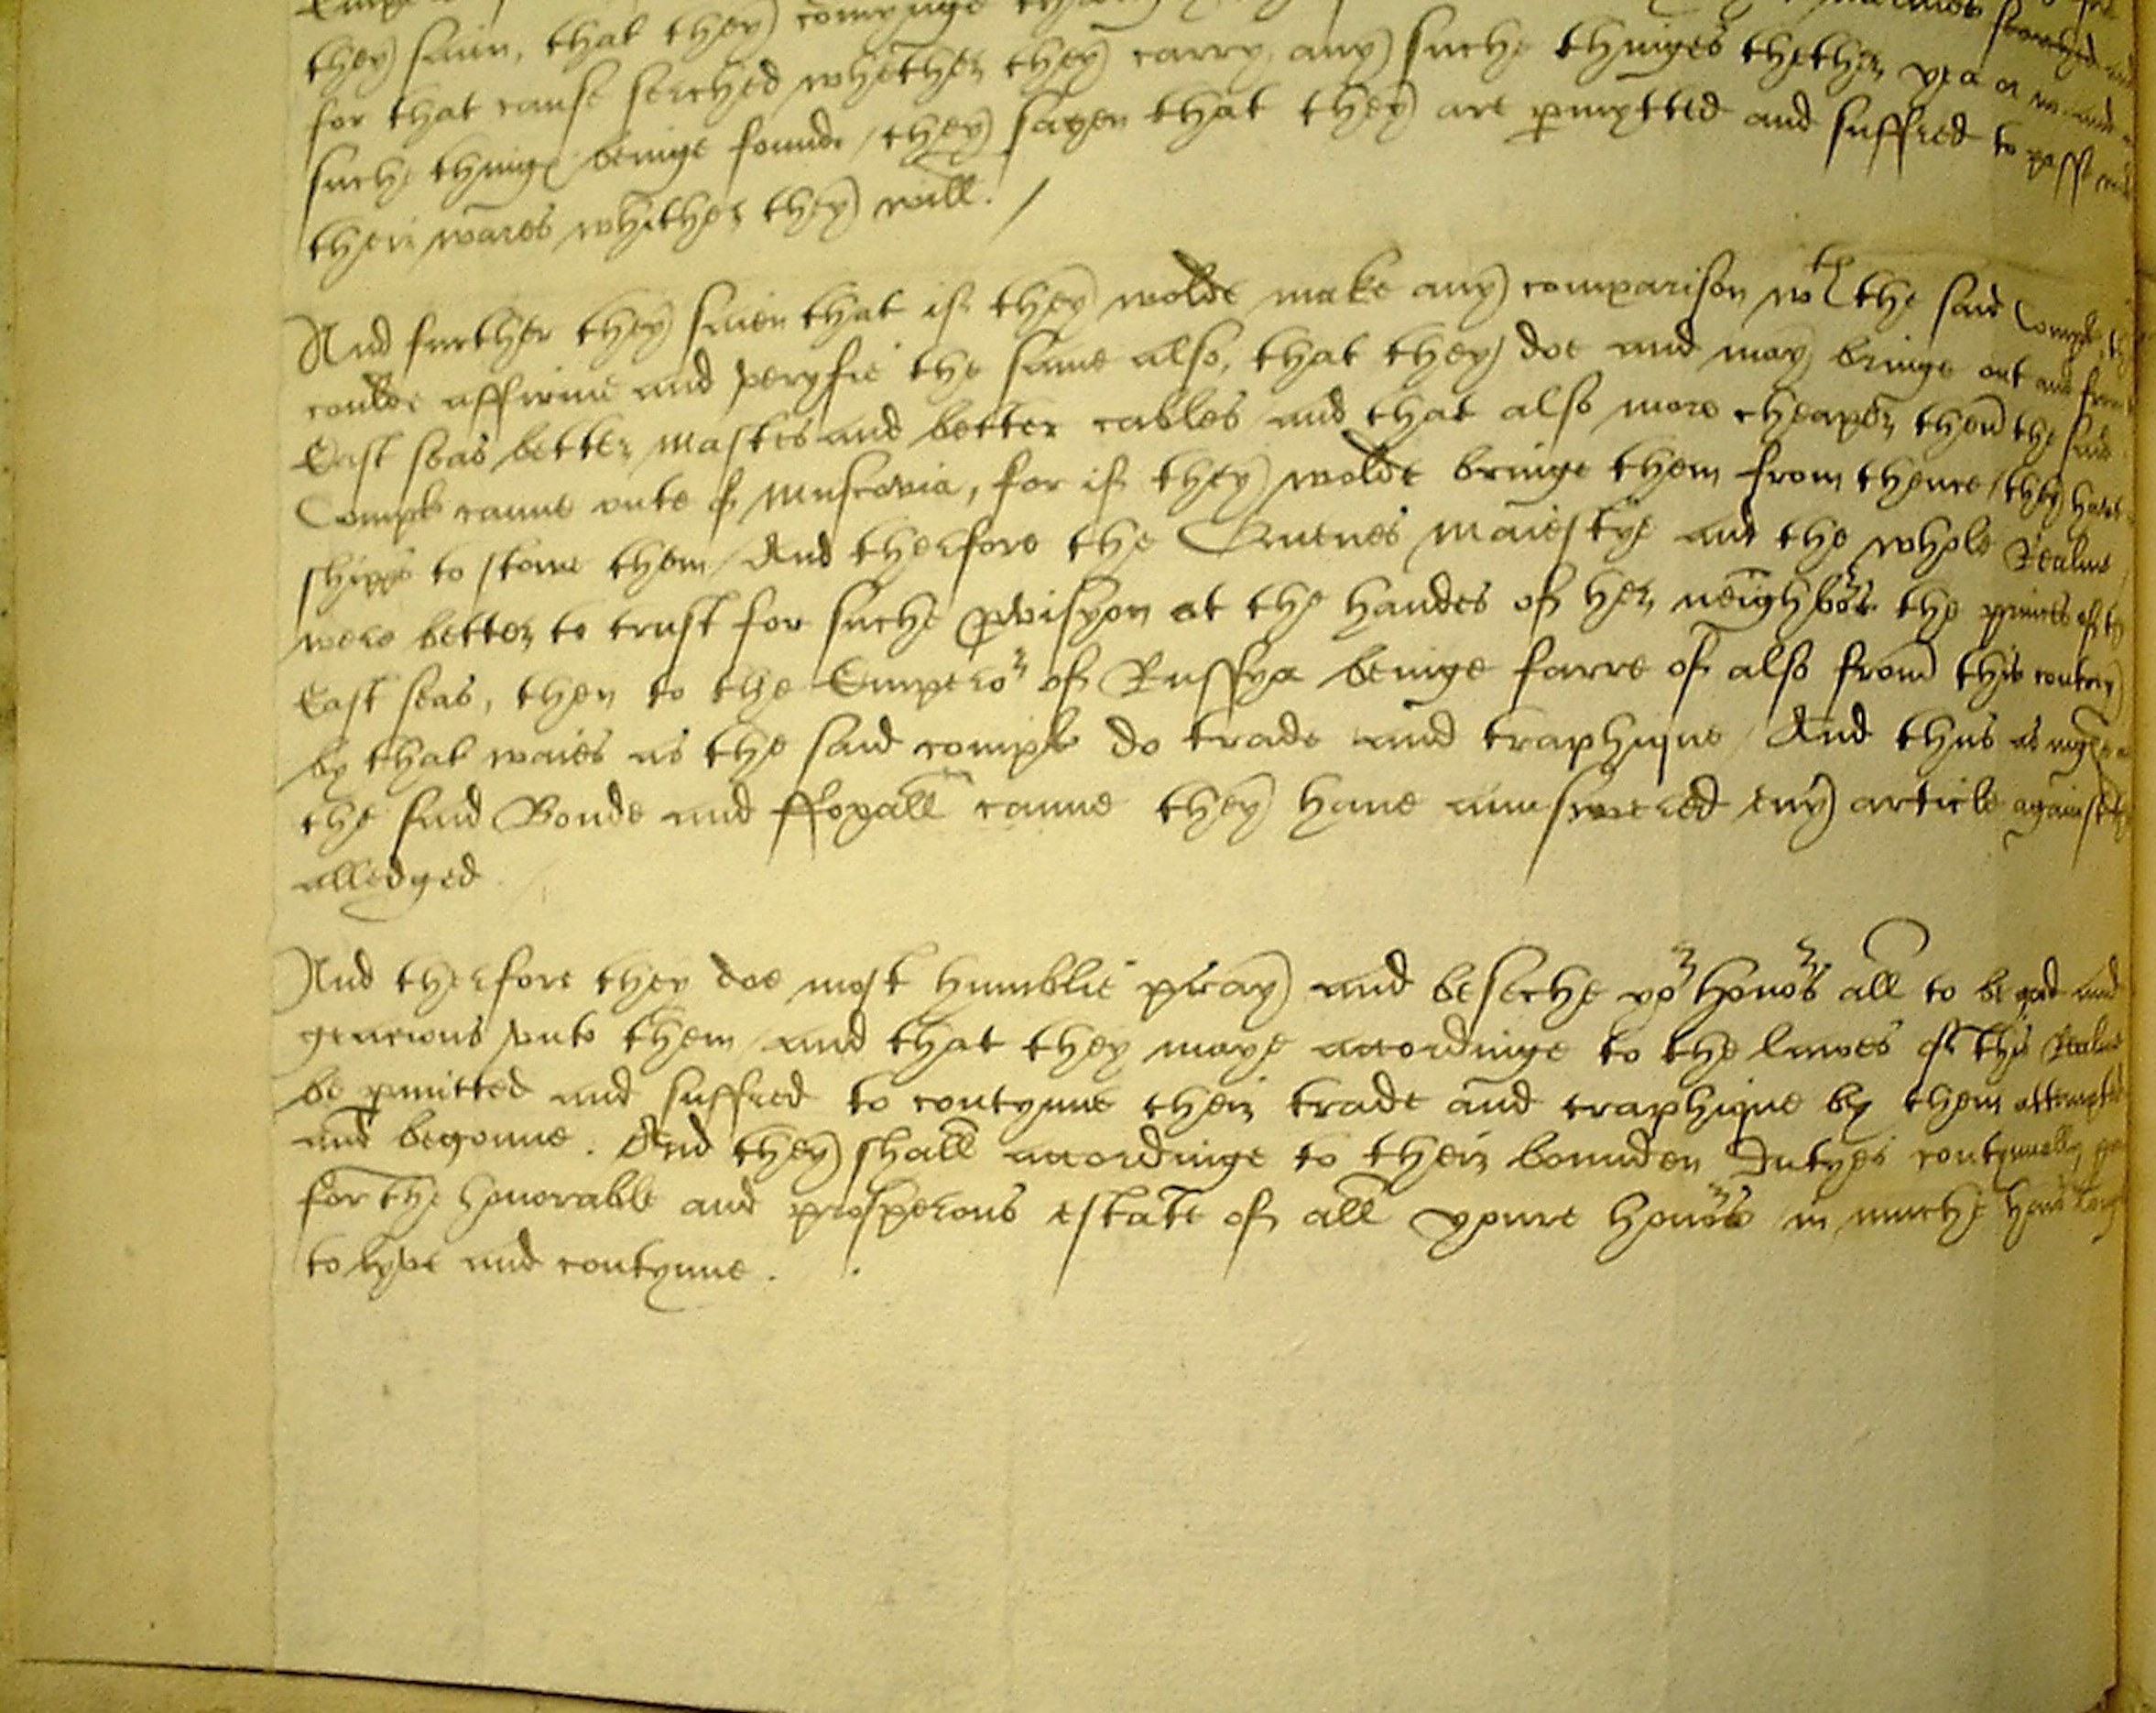 they saien, that they comynge
for that cause serched whether they carry any suche thinges thether yea or no and
suche thinge beinge founde / they sayen that they are pmytted and suffred to passe
their wares whither they will. /
And further they saien that if they wolde make any comparison wth the said Compa
coulde affirme and veryfie the same also, that they doe and may bringe out and from
East seas better mastes and better cables and that also more cheaper then the said
Compa canne oute of Muscovia, for if they wolde bringe them from thence / they have
shipps to stowe them / And therfore the Quenes maiestye and the whole Realme
were better to trust for suche pvisyon at the handes of her neighbors the princes of the
East seas, then to the Emperor of Russya beinge farre of also from this contrey
by that waies as the said compa do trade and traphique / And thus as
the said Bonde and ffoxall canne they have aunswered eny article against
alledged
And therfore they doe most humblie pray and beseche yor honors all to be good and
gracious vnto them / and that they maye accordinge to the lawes of this Realme
be pmitted and suffred to contynue their trade and traphique by them attempted
and begonne. And they shall accordinge to their bounden dutyes contynually
for the honorable and prosperous estate of all youre honors in muche honor longe
to lyve and contynue.